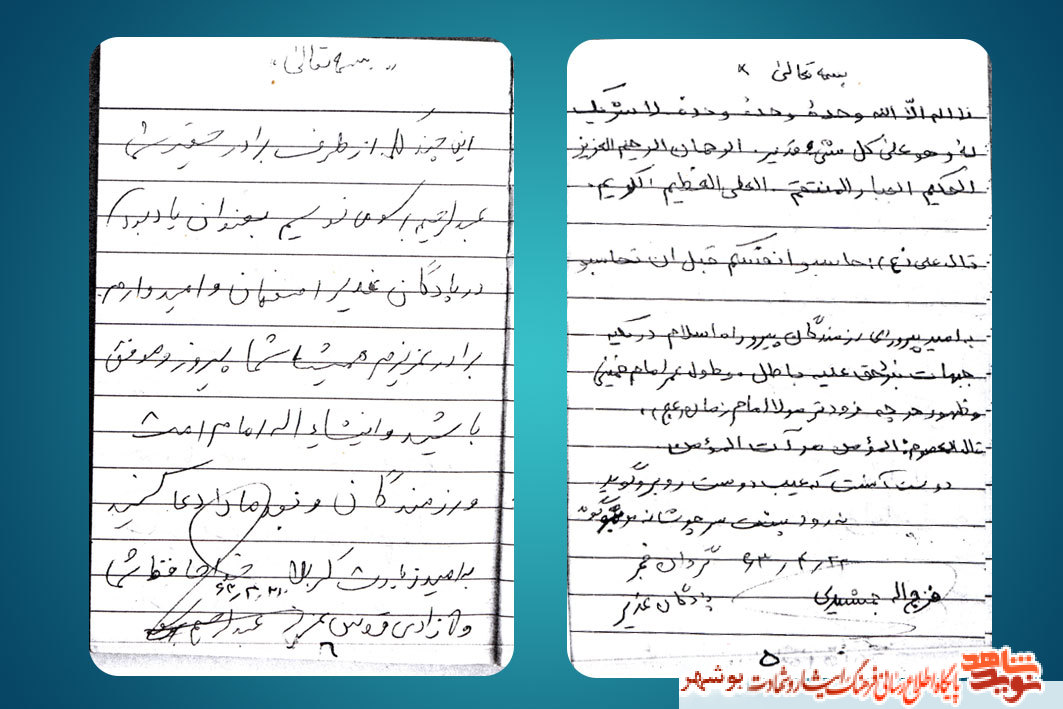 بسمه تعالی
لا اله الّا الله وحدهُ وحدهُ وحدهُ لا شریک
لهُ و هو علی کل شئ قدیر. الرحمان الرحیم العزیز
الحکیم الجبار المنتقم. العلی العظیم الکریم.
قال علی (ع): حاسبو انفسکم قبل ان تحاسبو
به امید پیروزی رزمندگان پیرو راه اسلام در کلیه
جبهات حق علیه باطل و طول عمر امام خمینی
و ظهور هر چه زودتر مولا امام زمان (عج)
قال المعصوم: المؤمن مرآت المؤمن
دوست آنست که عیب دوست روبرو گوید
نه رود پشت سر چو شانه مو
۶۳/۴/۲۳ گردان فجر
فرج اله جمشیدی پادگان غدیر
۵
« بسمه تعالی »
این چند از طرف برادر حقیر شما
عبدالرحیم می نویسم بعنوان یادبود
در پادگان غدیر اصفهان و امیدوارم
برادر عزیزم همیشه شما پیروز و موفق
باشید و انشاء اله امام امت
و رزمندگان و ما را دعا کنید
به امید زیارت کربلا خدا حافظ شما
و آزادی قدس عزیز عبدالرحیم
۶
نوید شاهد
پایگاه اطلاع رسانی فرهنگ ایثار و شهادت بوشهر